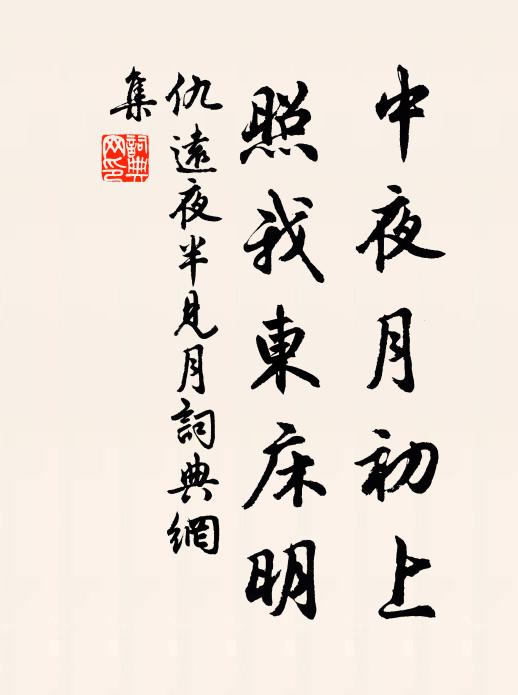 中夜月初上
照我東床明
仇遠夜半見月詞典網
集
詞典
网印